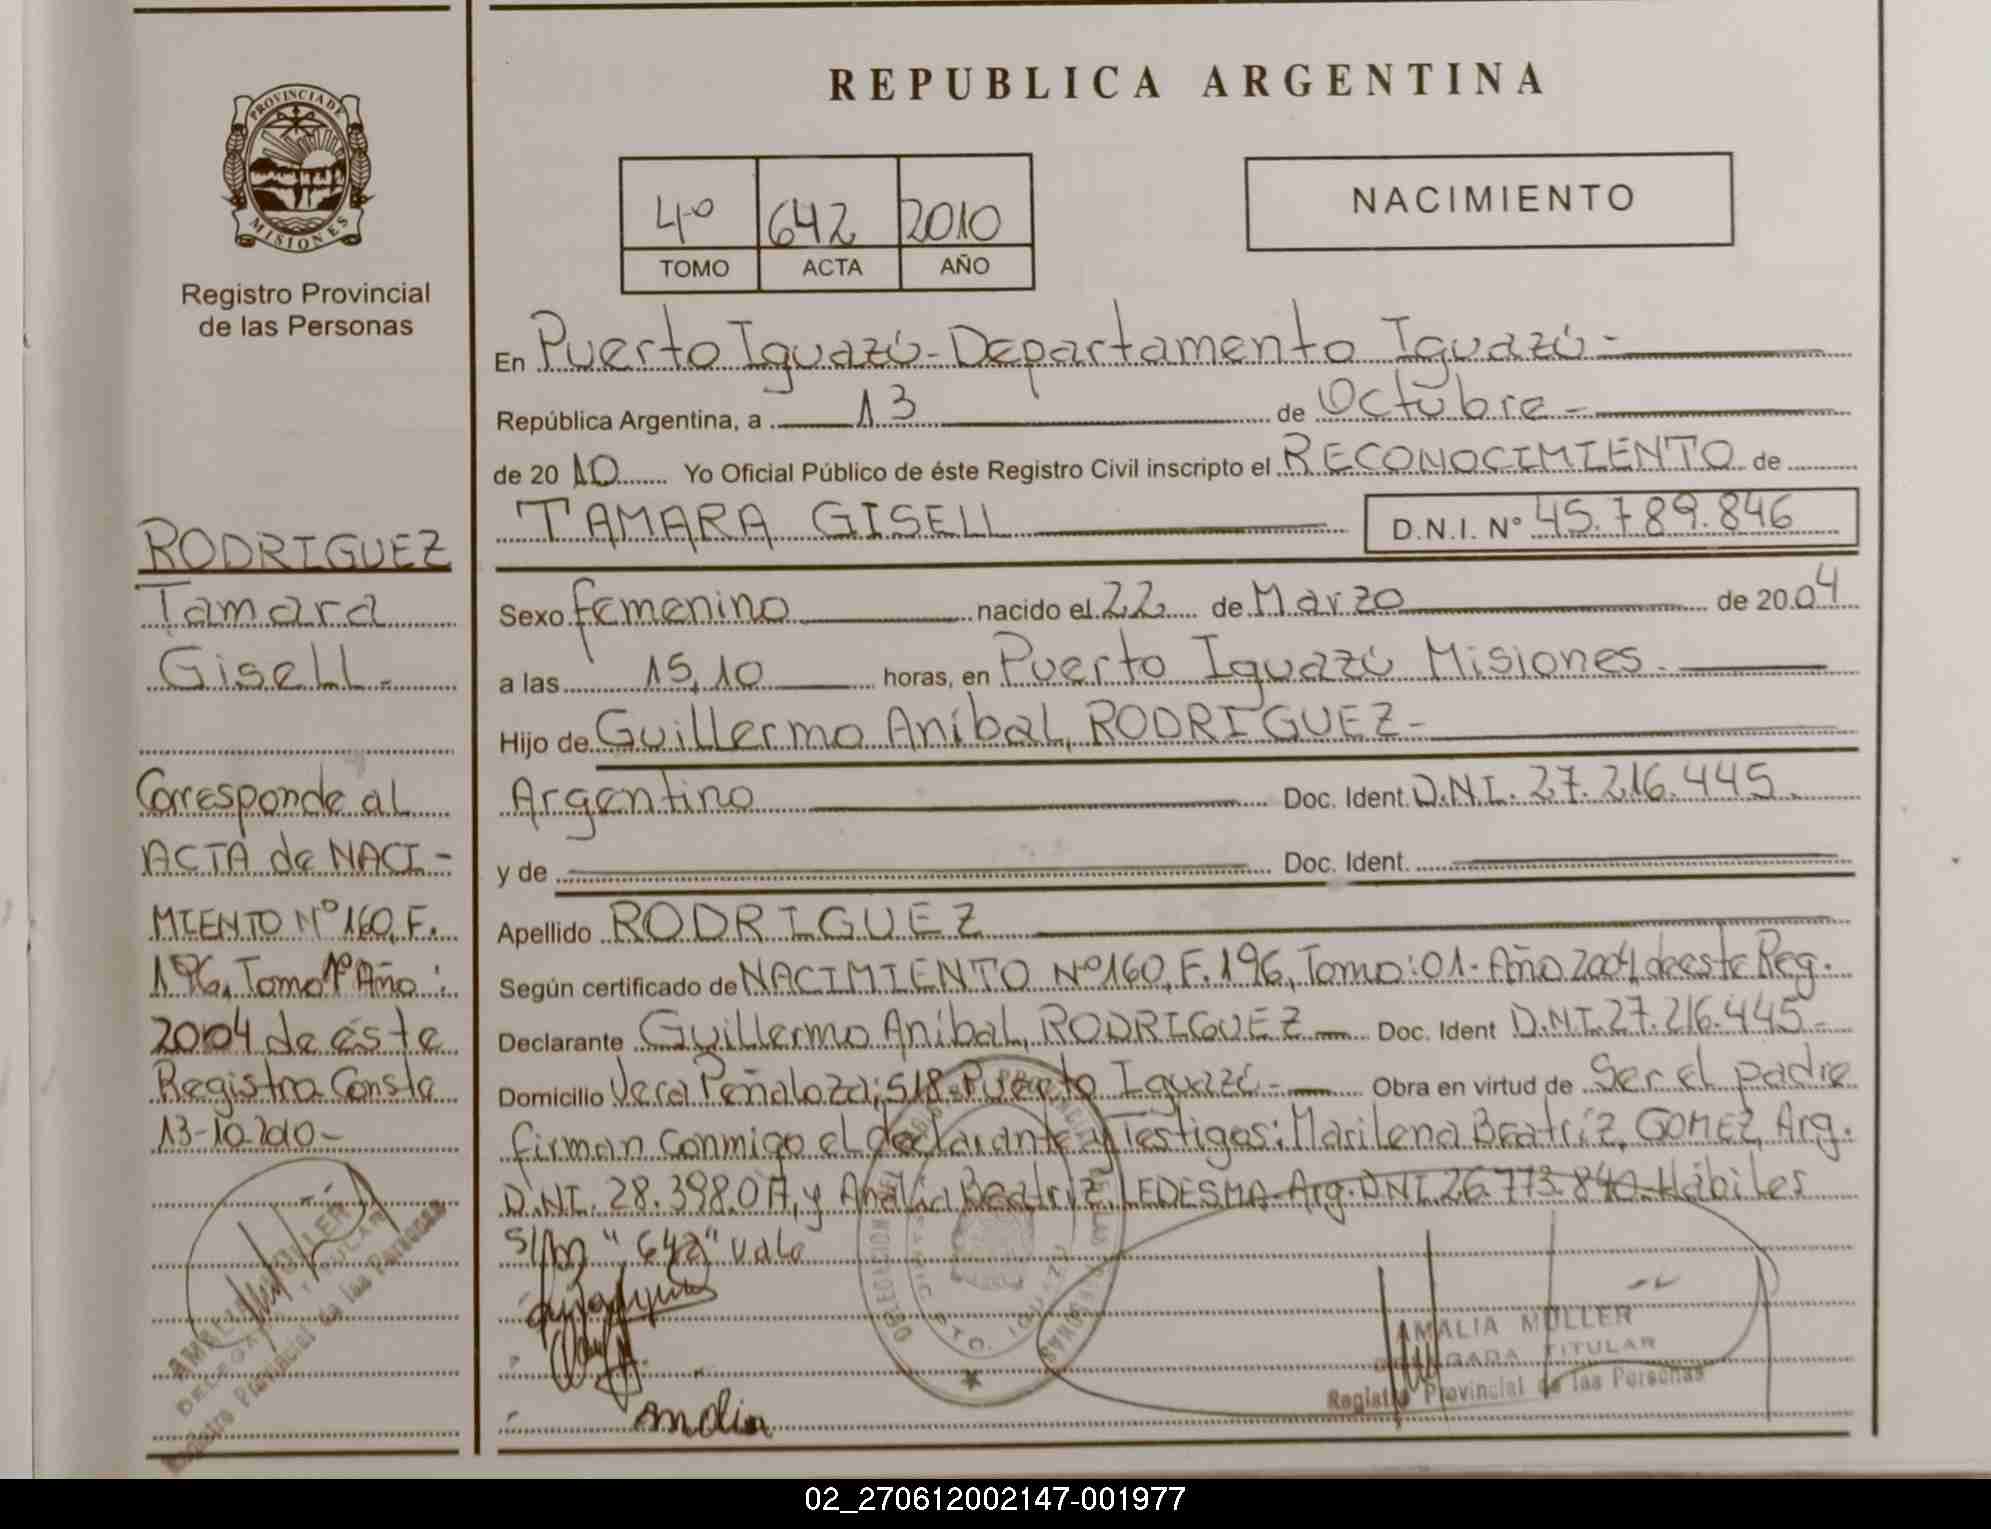 PROVINCIA DE
MISIONES
Registro Provincial
de las Personas
RODRIGUEZ
Tamara
Gisell.-
Corresponde al
ACTA de NACI-
MIENTO Nº 160, F.
196, Tomo 1º Año:
2004 de éste
Registro. Conste
13-10-2010-
AMALIA MULLER
DELEGADA TITULAR
Registro Provincial de las Personas
REPUBLICA ARGENTINA
4º 642 2010
TOMO ACTA AÑO
NACIMIENTO
En Puerto Iguazú - Departamento Iguazú -
República Argentina, a 13 de Octubre -
de 20 10 Yo Oficial Público de éste Registro Civil inscripto el RECONOCIMIENTO de
TAMARA GISELL D.N.I. Nº 45.789.846
Sexo femenino nacido el 22 de Marzo de 20 04
a las 15,10 horas, en Puerto Iguazú Misiones.
Hijo de Guillermo Aníbal, RODRIGUEZ -
Argentino Doc. Ident. D.N.I. 27.216.445.
y de Doc. Ident.
Apellido RODRIGUEZ
Según certificado de NACIMIENTO Nº 160, F. 196, Tomo: 01- Año 2004 de este Reg.
Declarante Guillermo Aníbal, RODRIGUEZ Doc. Ident D.N.I. 27.216.445-
Domicilio Vera Peñaloza; 518- Puerto Iguazú - Obra en virtud de Ser el padre
firman conmigo el declarante y Testigos: Marilena Beatríz, GOMEZ, Arg.
D.NI. 28.398.017, y Analia Beatríz, LEDESMA- Arg. DNI. 26.773.840- Hábiles
"642" Vale
AMALIA MULLER
DELEGADA TITULAR
Registro Provincial de las Personas
02_270612002147-001977